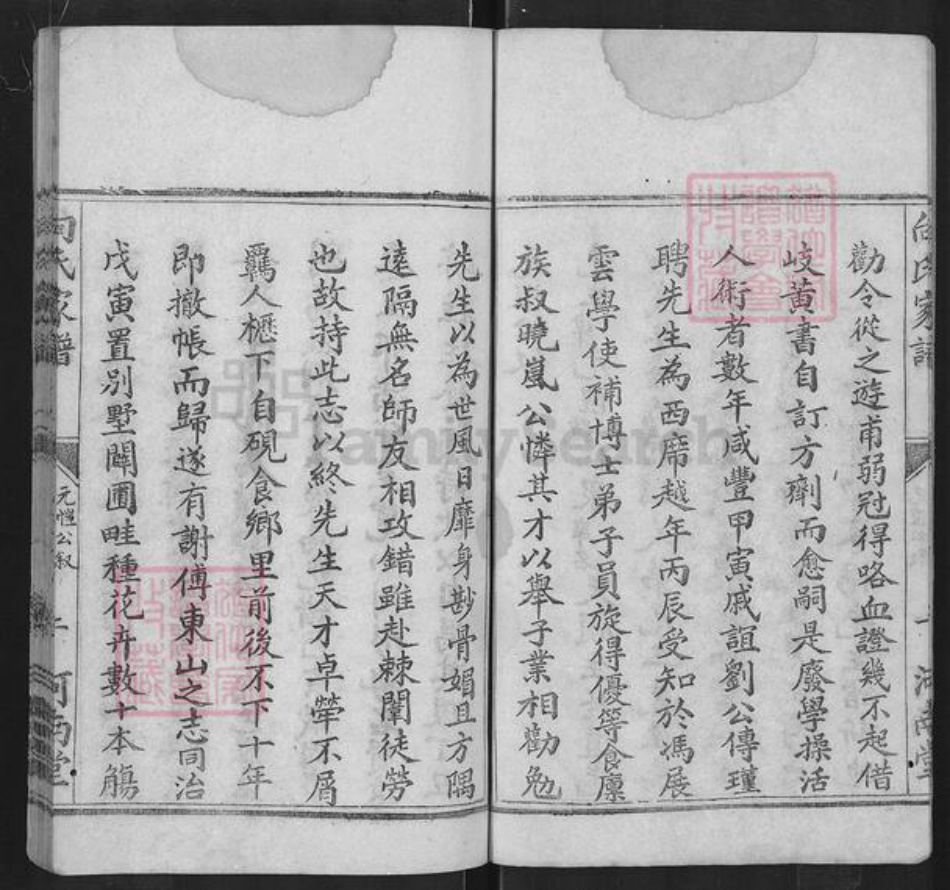 勸令從之遊甫弱冠得咯血證幾不起借
岐黃書自訂方劑而愈嗣是廢學操活
人術者數年咸豐甲寅戚誼劉公傳瑾
聘先生為西席越年丙辰受知於馮展
雲學使補博士弟子員旋得優等食廩
族叔曉嵐公憐其才以舉子業相勸勉
先生以為世風日靡身尠骨媚且方隅
遠隔無名師友相攻錯雖赴棘闈徒勞
也故持此志以終先生天才卓犖不屑
羈人櫪下自硯食鄉里前後不下十年
即撤帳而歸遂有謝傅東山之志同治
戊寅置別墅闢圃畦種花卉數十本觴
氏家譜
元愷公叙
河南堂
FamilySearch